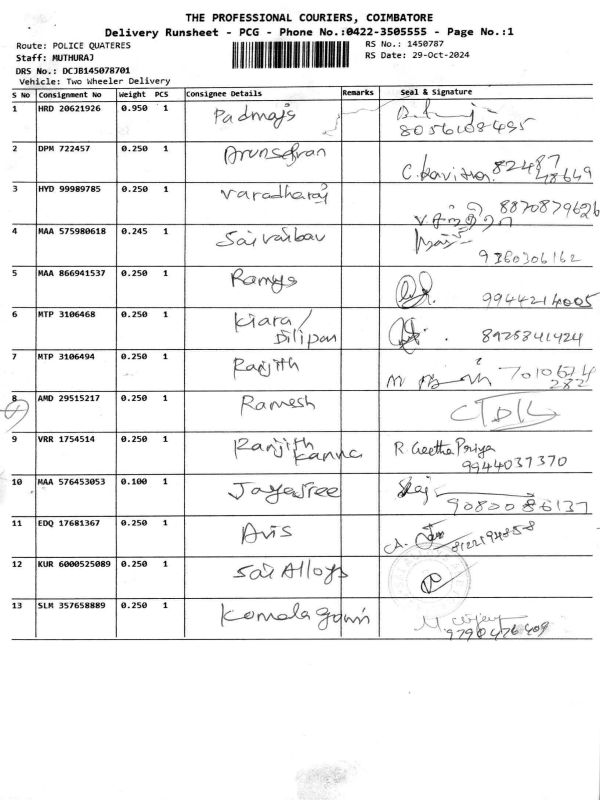 THE PROFESSIONAL COURIERS, COIMBATORE
Delivery Runsheet - PCG - Phone No.:0422-3505555 - Page No.:1
Route: POLICE QUATERES
RS No.: 1450787
Staff: MUTHURAJ
RS Date: 29-Oct-2024
DRS No.: DCJB145078701
Vehicle: Two Wheeler Delivery
S No Consignment No Weight PCS Consignee Details Remarks Seal & Signature
1 HRD 20621926 0.950 1 Padmajs
8056108495
2 DPM 722457 0.250 1 C.Kavitha 82487
48649
3 HYD 99989785 0.250 1 Varadharaj 8870879626
4 MAA 575980618 0.245 1 Sai vaibav
9360306162
5 MAA 866941537 0.250 1 Ramys 9944214005
6 MTP 3106468 0.250 1 Kiara/
Dilipan 8925841424
7 MTP 3106494 0.250 1 Ranjith 7010674
282
8 AMD 29515217 0.250 1 Ramesh
9 VRR 1754514 0.250 1 Ranjith
Kanna R. Geetha Priya
9944037370
10 MAA 576453053 0.100 1 Jayasree
9080086137
11 EDQ 17681367 0.250 1 Avis 8122194858
12 KUR 6000525089 0.250 1 Sai Alloys
13 SLM 357658889 0.250 1 Komala Gowri
9790476409